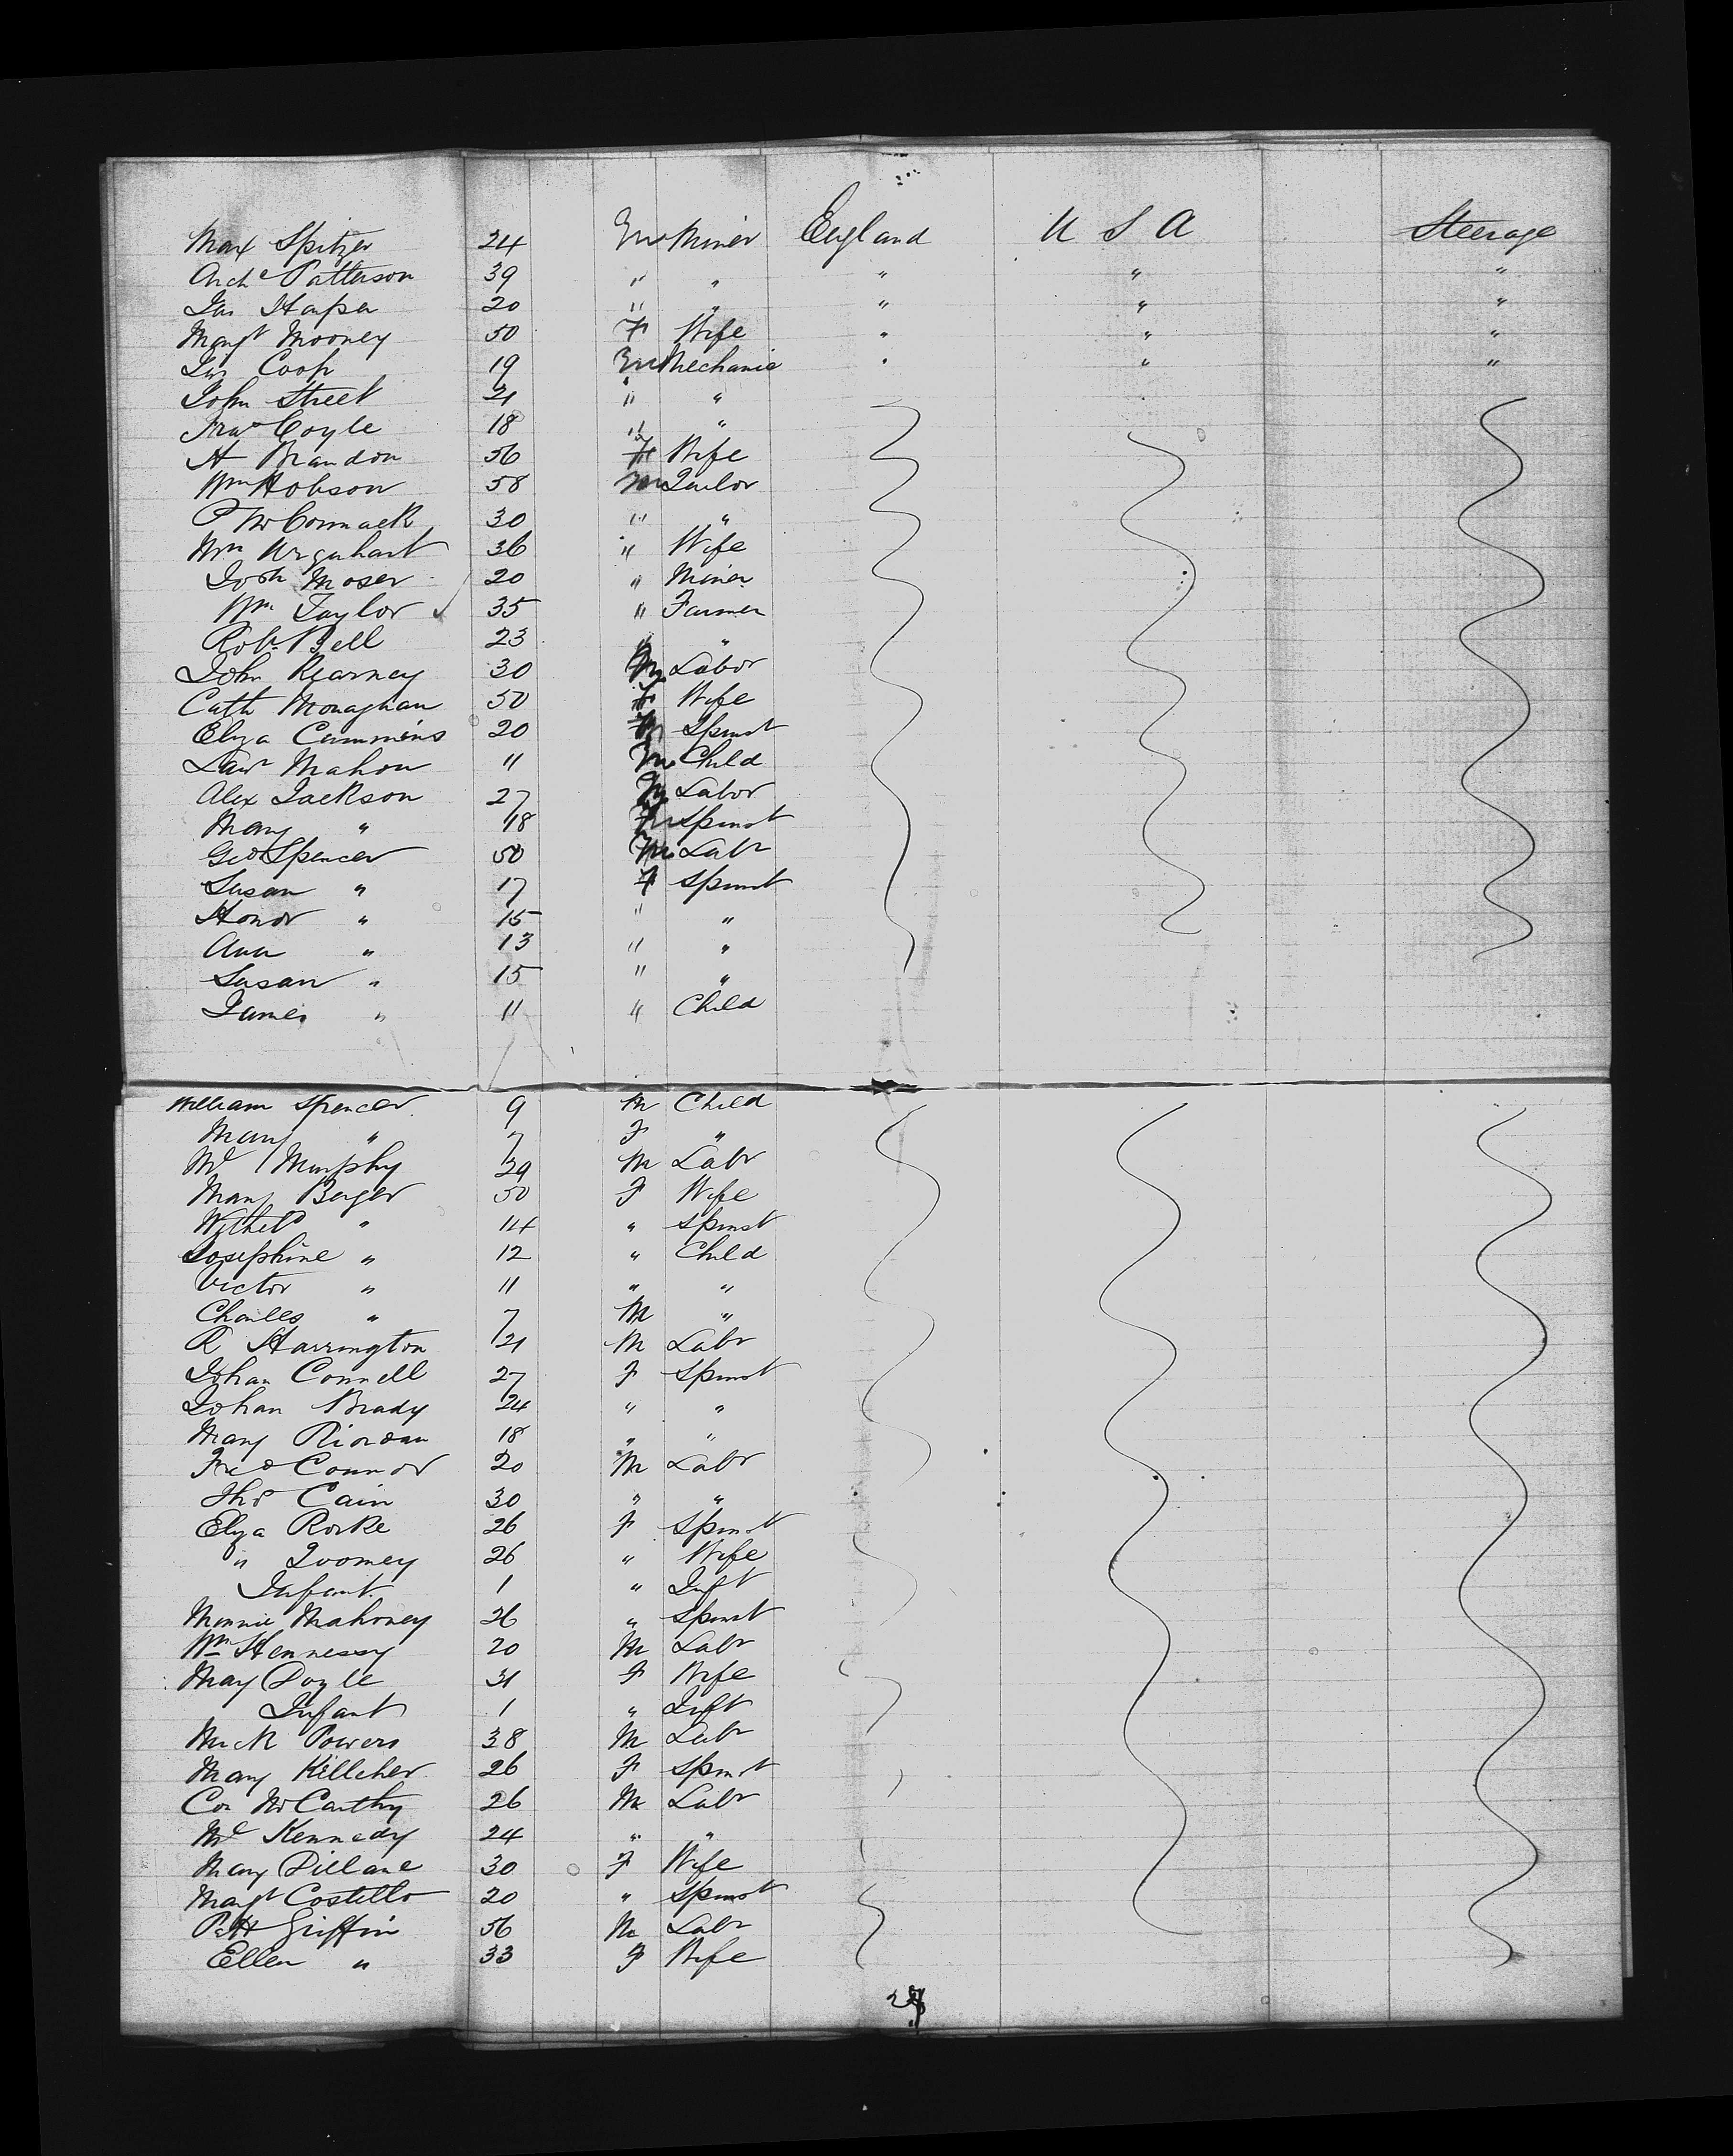 Max Spitzer 24 M Miner England U S A Steerage
Arch<sup>e</sup> Patterson 39 " " " " "
Jas Harper 20 " " " " "
Margt Mooney 50 F Wife " " "
Jas Coop 19 M Mechanic " " "
John Street 21 " "
Fras Coyle 18 " "
H Brandon 56 F Wife
Wm Hobson 58 M Tailor
P McCormack 30 " "
Wm Urquhart 36 " Wife
Josh Moser 20 " Miner
Wm Taylor 35 " Farmer
Robt Bell 23 " "
John Kearney 30 M Labor
Cath Monaghan 50 F Wife
Eliza Cummins 20 Spinst
Lawr Mahon 11 M Child
Alex Jackson 27 M Labor
Mary " 18 F Spinst
Geo Spencer 50 M Labr
Susan " 17 F Spinst
Honor " 15 " "
Ann " 13 " "
Susan " 15 " "
James " 11 " Child
William Spencer 9 M Child
Mary " 7 F "
Ml Murphy 29 M Labr
Mary Berger 50 F Wife
" 14 " Spinst
Josephine " 12 " Child
Victor " 11 " "
Charles " 7 M "
R Harrington 21 M Labr
Johan Connell 27 F Spinst
Johan Brady 24 " "
Mary Riordan 18 " "
Fred Connor 20 M Labr
Thos Cain 30 " "
Eliza Rorke 26 F Spinst
" Toomey 26 " Wife
Infant 1 " Inft
Minnie Mahoney 26 " Spinst
Wm Hennessy 20 M Labr
May Doyle 31 F Wife
Infant 1 " Inft
Mick Powers 38 M Labr
Mary Killeher 26 F Spinst
Cor McCarthy 26 M Labr
Ml Kennedy 24 " "
Mary Dillane 30 F Wife
Margt Costello 20 " Spinst
Patt Griffin 56 M Labr
Ellen " 33 F Wife